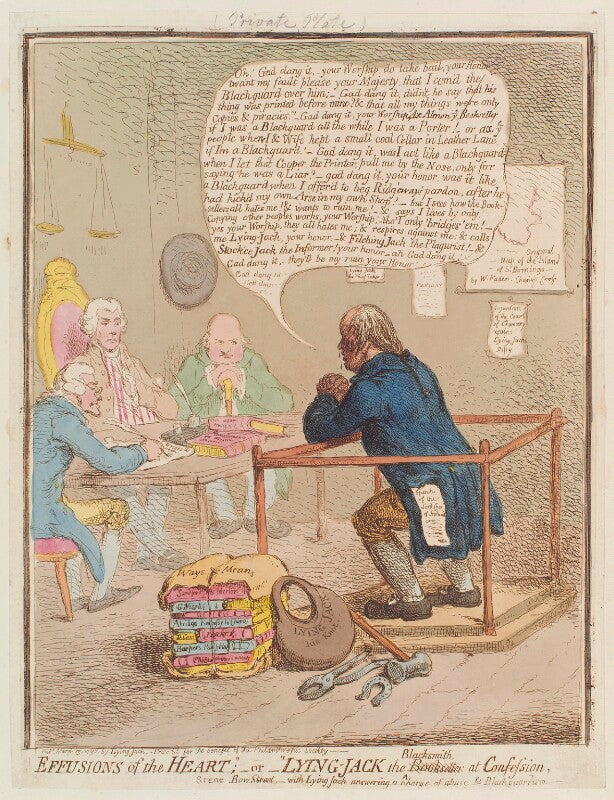 (Private Plate)
Oh! Gad dang it, your Worship, do take bail, your Honor!
twant my fault please your Majesty, that I com'd the
Blackguard over him;_ Gad dang it, didn't he say that his
thing was printed before mine? & that all my things were only
Copies & piracies._ Gad dang it, your Worship, Ax Almon ye Bookseller
if I was a Blackguard all the while I was a Porter!_ or ax ye
people where I & Wife kept a small coal Cellar in Leather Lane,
if I'm a Blackguard._ Gad dang it, was I act like a Blackguard,
when I let that Cooper the Printer, pull me by the Nose, only for
saying he was a Liar?_ gad dang it, your honor, was it like
a Blackguard when I offer'd to beg Ridgeway's pardon, after he
had kick'd my own Arse in my own Shop?_ but I see how the Book-
sellers all hates me! & wants to ruin me! & says I lives by only
Copying other peoples works, your Worship, tho' I only bridges 'em!_
yes your Worship, they all hates me, & respires against me, & calls
me Lying-Jack, your honor,_ & Filching Jack the Plagiarist! &
Stockee Jack the Informer, your honor_ ah Gad dang it!_
Gad dang it, they'll be my ruin your Honor_
Gad dang it_
Gad dang_
Original
Map of the Island
of St. Domingo_
by W. Faden. Charing Cross
Lying Jack
Injunction
of the Court
of Chancery
against
Lying Jack
Piracy
Speech
of the
Lord
of Ireland
Ways & Means
Abridg'd
Harpers
LYING JACK
his Knot
Pub. March 1798 by Lying Jack, _ Price for the benefit of the Philanthropic Society
EFFUSIONS of the HEART;_or_"LYING-JACK the Blacksmith Bookseller at Confession,
Scene Bow Street, _ with Lying Jack answering a Charge of abuse & Blackguardism